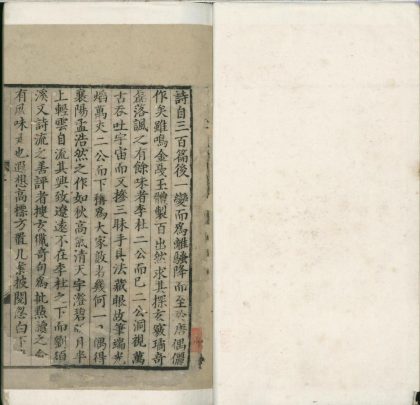 詩自三百篇後一變而爲離騷降而至於唐偶儷
作矣雖鳴金戛玉體製百出然求其探玄竅摘奇
蘊落諷之有餘味者李杜二公而已二公洞視萬
古吞吐宇宙而又擦三昧手具法藏眼故筆端光
焰萬丈二公而下稱爲大家數者幾何一 偶得
襄陽孟浩然之作如秋高氣清天宇澄碧 月半
上輕雲自流其興致遼遠不在李杜之下而劉須
溪又詩流之善評者搜玄獵奇句爲批點讀之令
有風味 也遐想高標方置几案披閱忽白下